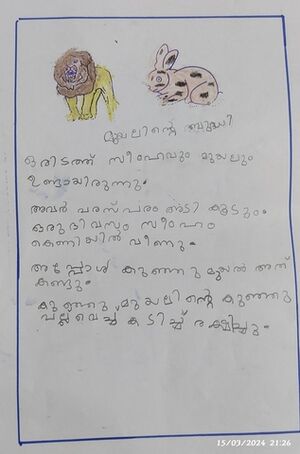 മുയലിന്റെ ബുദ്ധി
ഒരിടത്ത് സിംഹവും മുയലും
ഉണ്ടായിരുന്നു.
അവർ പരസ്പരം അടി കൂടും.
ഒരു ദിവസം സിംഹം
കെണിയിൽ വീണു.
അപ്പോൾ കുഞ്ഞു മുയൽ അത്
കണ്ടു.
കുഞ്ഞു മുയലിന്റെ കുഞ്ഞു
പല്ലുവെച്ച് കടിച്ച് രക്ഷിച്ചു.
15/03/2024 21:26